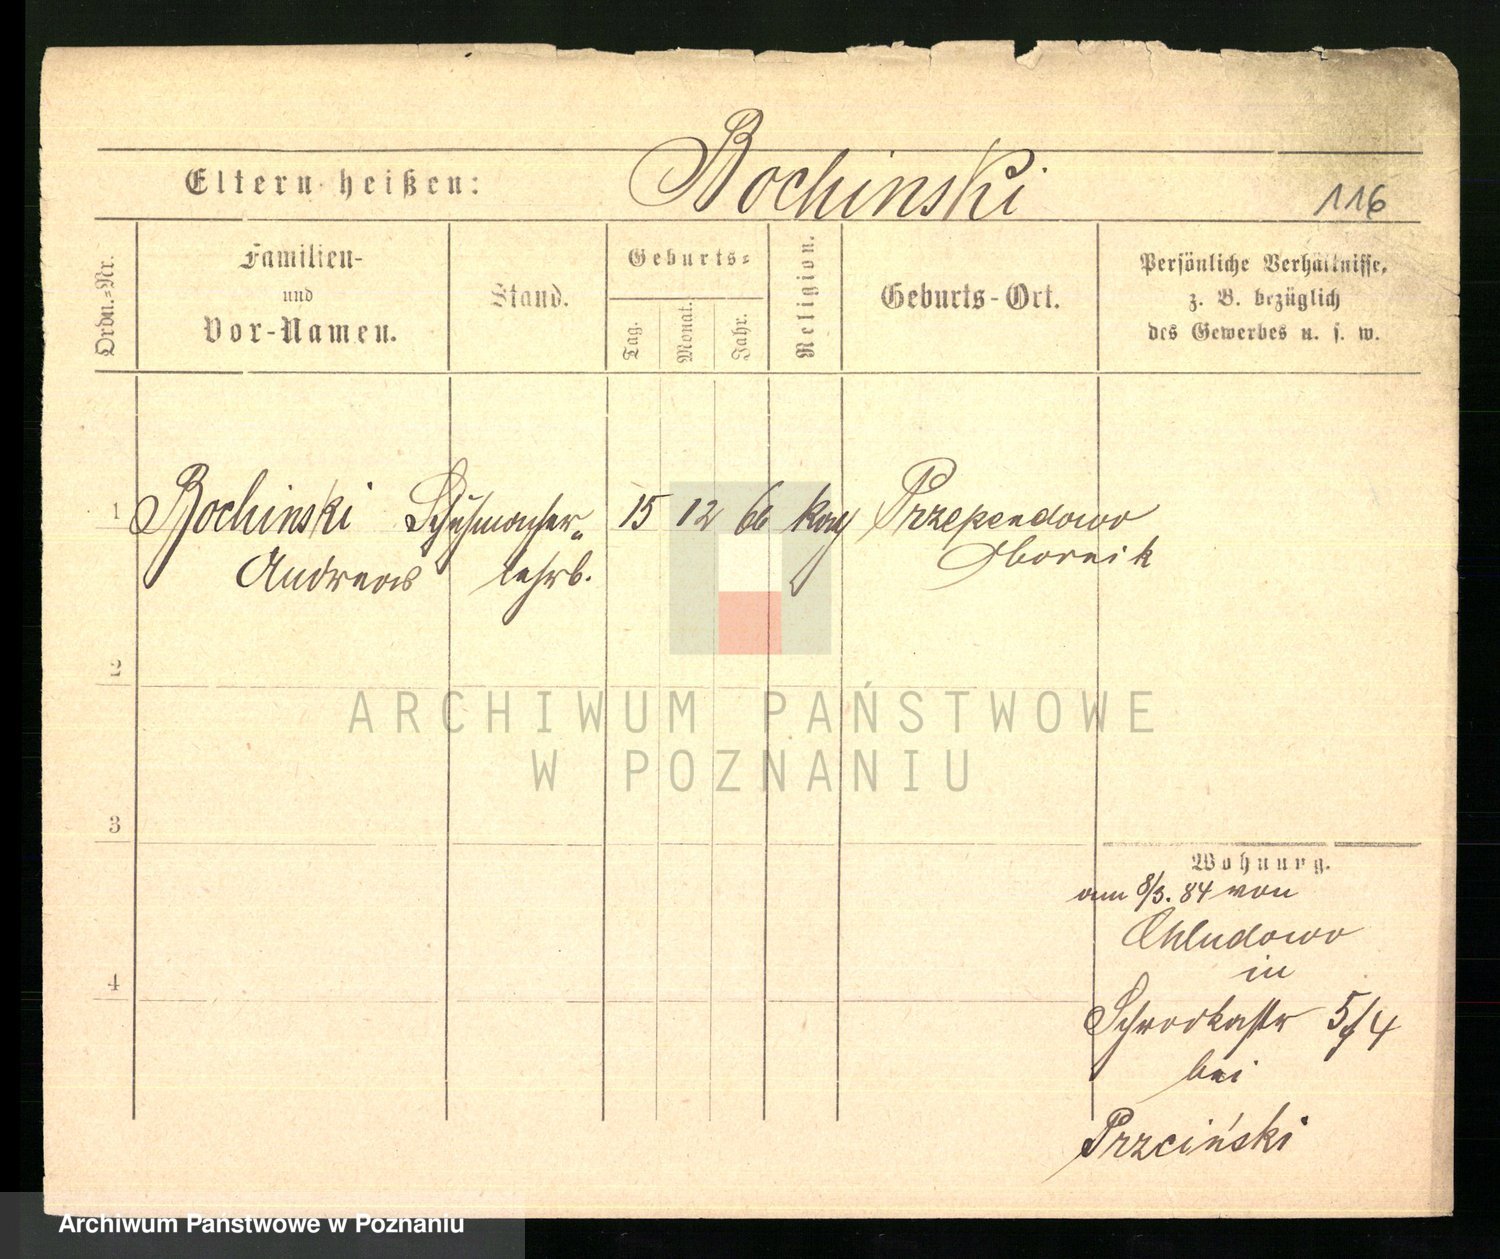 Bochinski
Eltern heißen:
116
Ordn.=Nr.
Familien-
und
Vor-Namen.
Stand.
Geburts=
Tag.
Monat.
Jahr.
Religion.
Geburts-Ort.
Persönliche Verhältnisse,
z. B. bezüglich
des Gewerbes u. s. w.
1 Bochinski Schuhmacher= 15 12 66 Przependowo
Andreas lehrb. Obornik
2
ARCHIWUM PAŃSTWOWE
W POZNANIU
3
Wohnung.
am 8/3. 84 von
Chludowo
in
4
Schrodkastr 5/4
bei
Przciński
Archiwum Państwowe w Poznaniu